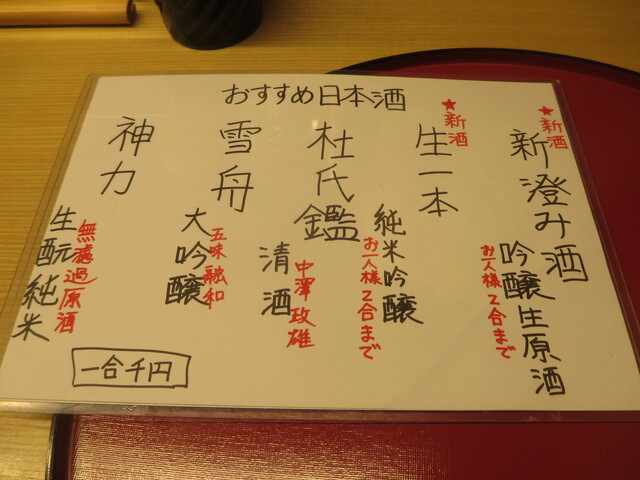 おすすめ日本酒
★新酒
新澄み酒
吟醸生原酒
お一人様2合まで
★新酒
生一本
純米吟醸
お一人様2合まで
杜氏鑑
清酒
中澤政雄
雪舟
大吟醸
五味融和
神力
生酛純米
無濾過原酒
一合千円